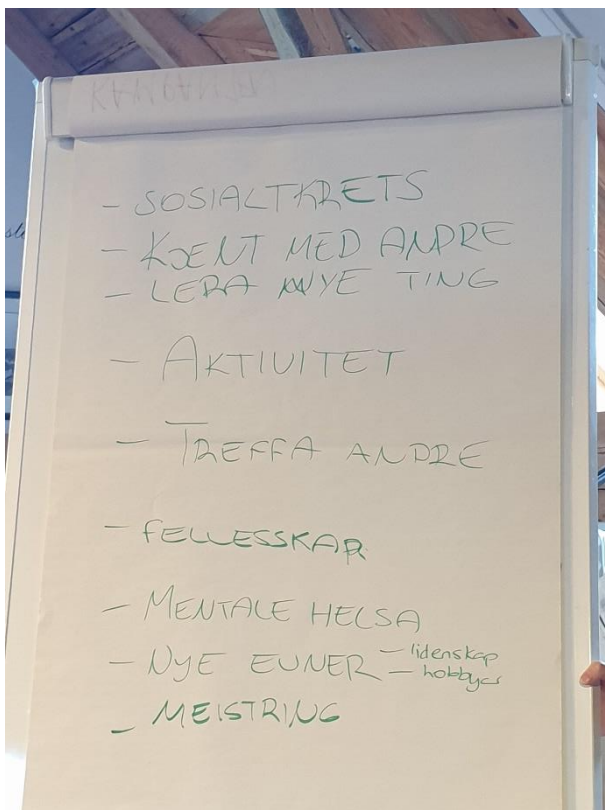 - SOSIALTKRETS
- KJENT MED ANDRE
- LERA NYE TING
- AKTIVITET
- TREFFA ANDRE
- FELLESSKAP
- MENTALE HELSA
- NYE EVNER - lidenskap
- hobbyer
- MEISTRING